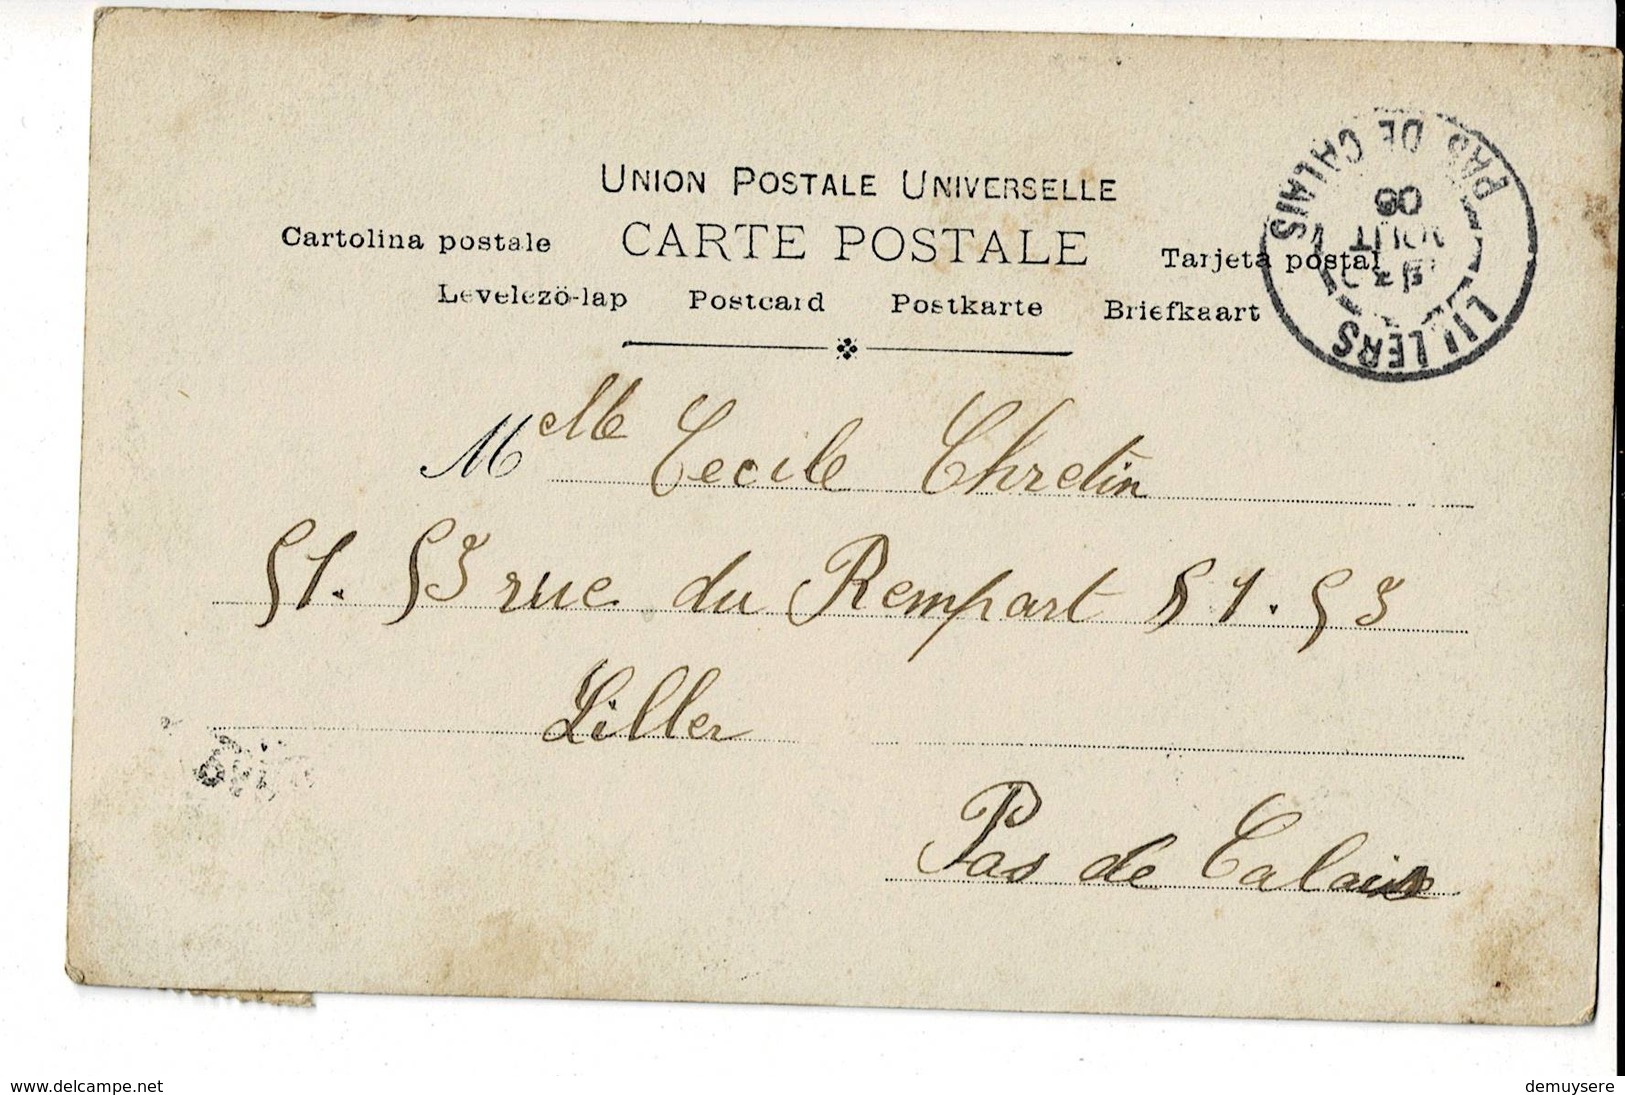 UNION POSTALE UNIVERSELLE
Cartolina postale CARTE POSTALE Tarjeta postal
Levelezö-lap Postcard Postkarte Briefkaart
PAS DE CALAIS
LILLERS
AOUT
06
Melle Cecile Chretin
51. 53 rue du Rempart 51. 53
Liller
Pas de Calais
www.delcampe.net
demuysere